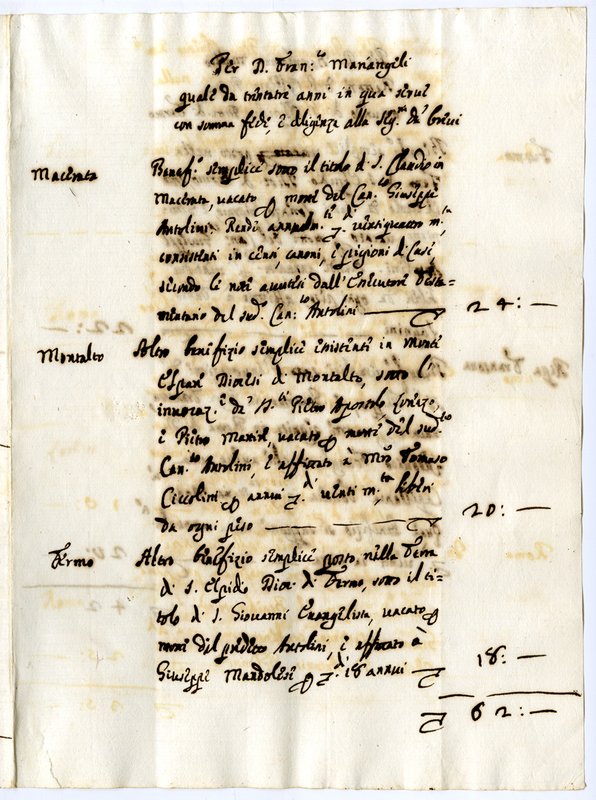 Per D. Fran:co Mariangeli
quale da trentatre anni in quà serve
con somma fede, e diligenza alla Seg.ria de brevi
Macerata Benef.o semplice sotto il titolo di S. Claudio in
Macerata, vacato p morte del Can:co Giuseppe
Antolini. Rende annualm.te di ventiquattro m.ta,
consistenti in censi, canoni, e pigioni di Case,
secondo le note avutesi dall'Esecutore Testa=
mentario del sud.o Can:co Antolini 24:—
Montalto Altro benefizio semplice esistente in Monte
Elpare Diocesi di Montalto, sotto l'
invocaz.e de' S.ti Pietro Apostolo, Lorenzo,
e Pietro Martire, vacato p morte del sud.to
Can:co Antolini, e affittato à Mro Tomaso
Ciccolini p annui di venti m.ta liberi
da ogni peso 20:—
Fermo Altro benefizio semplice posto nella Terra
di S. Elpidio Dioc. di Fermo, sotto il ti=
tolo di S. Giovanni Evangelista, vacato p
morte del predetto Antolini, e affittato à
Giuseppe Mandolesi p di 18 annui 18:—
62:—